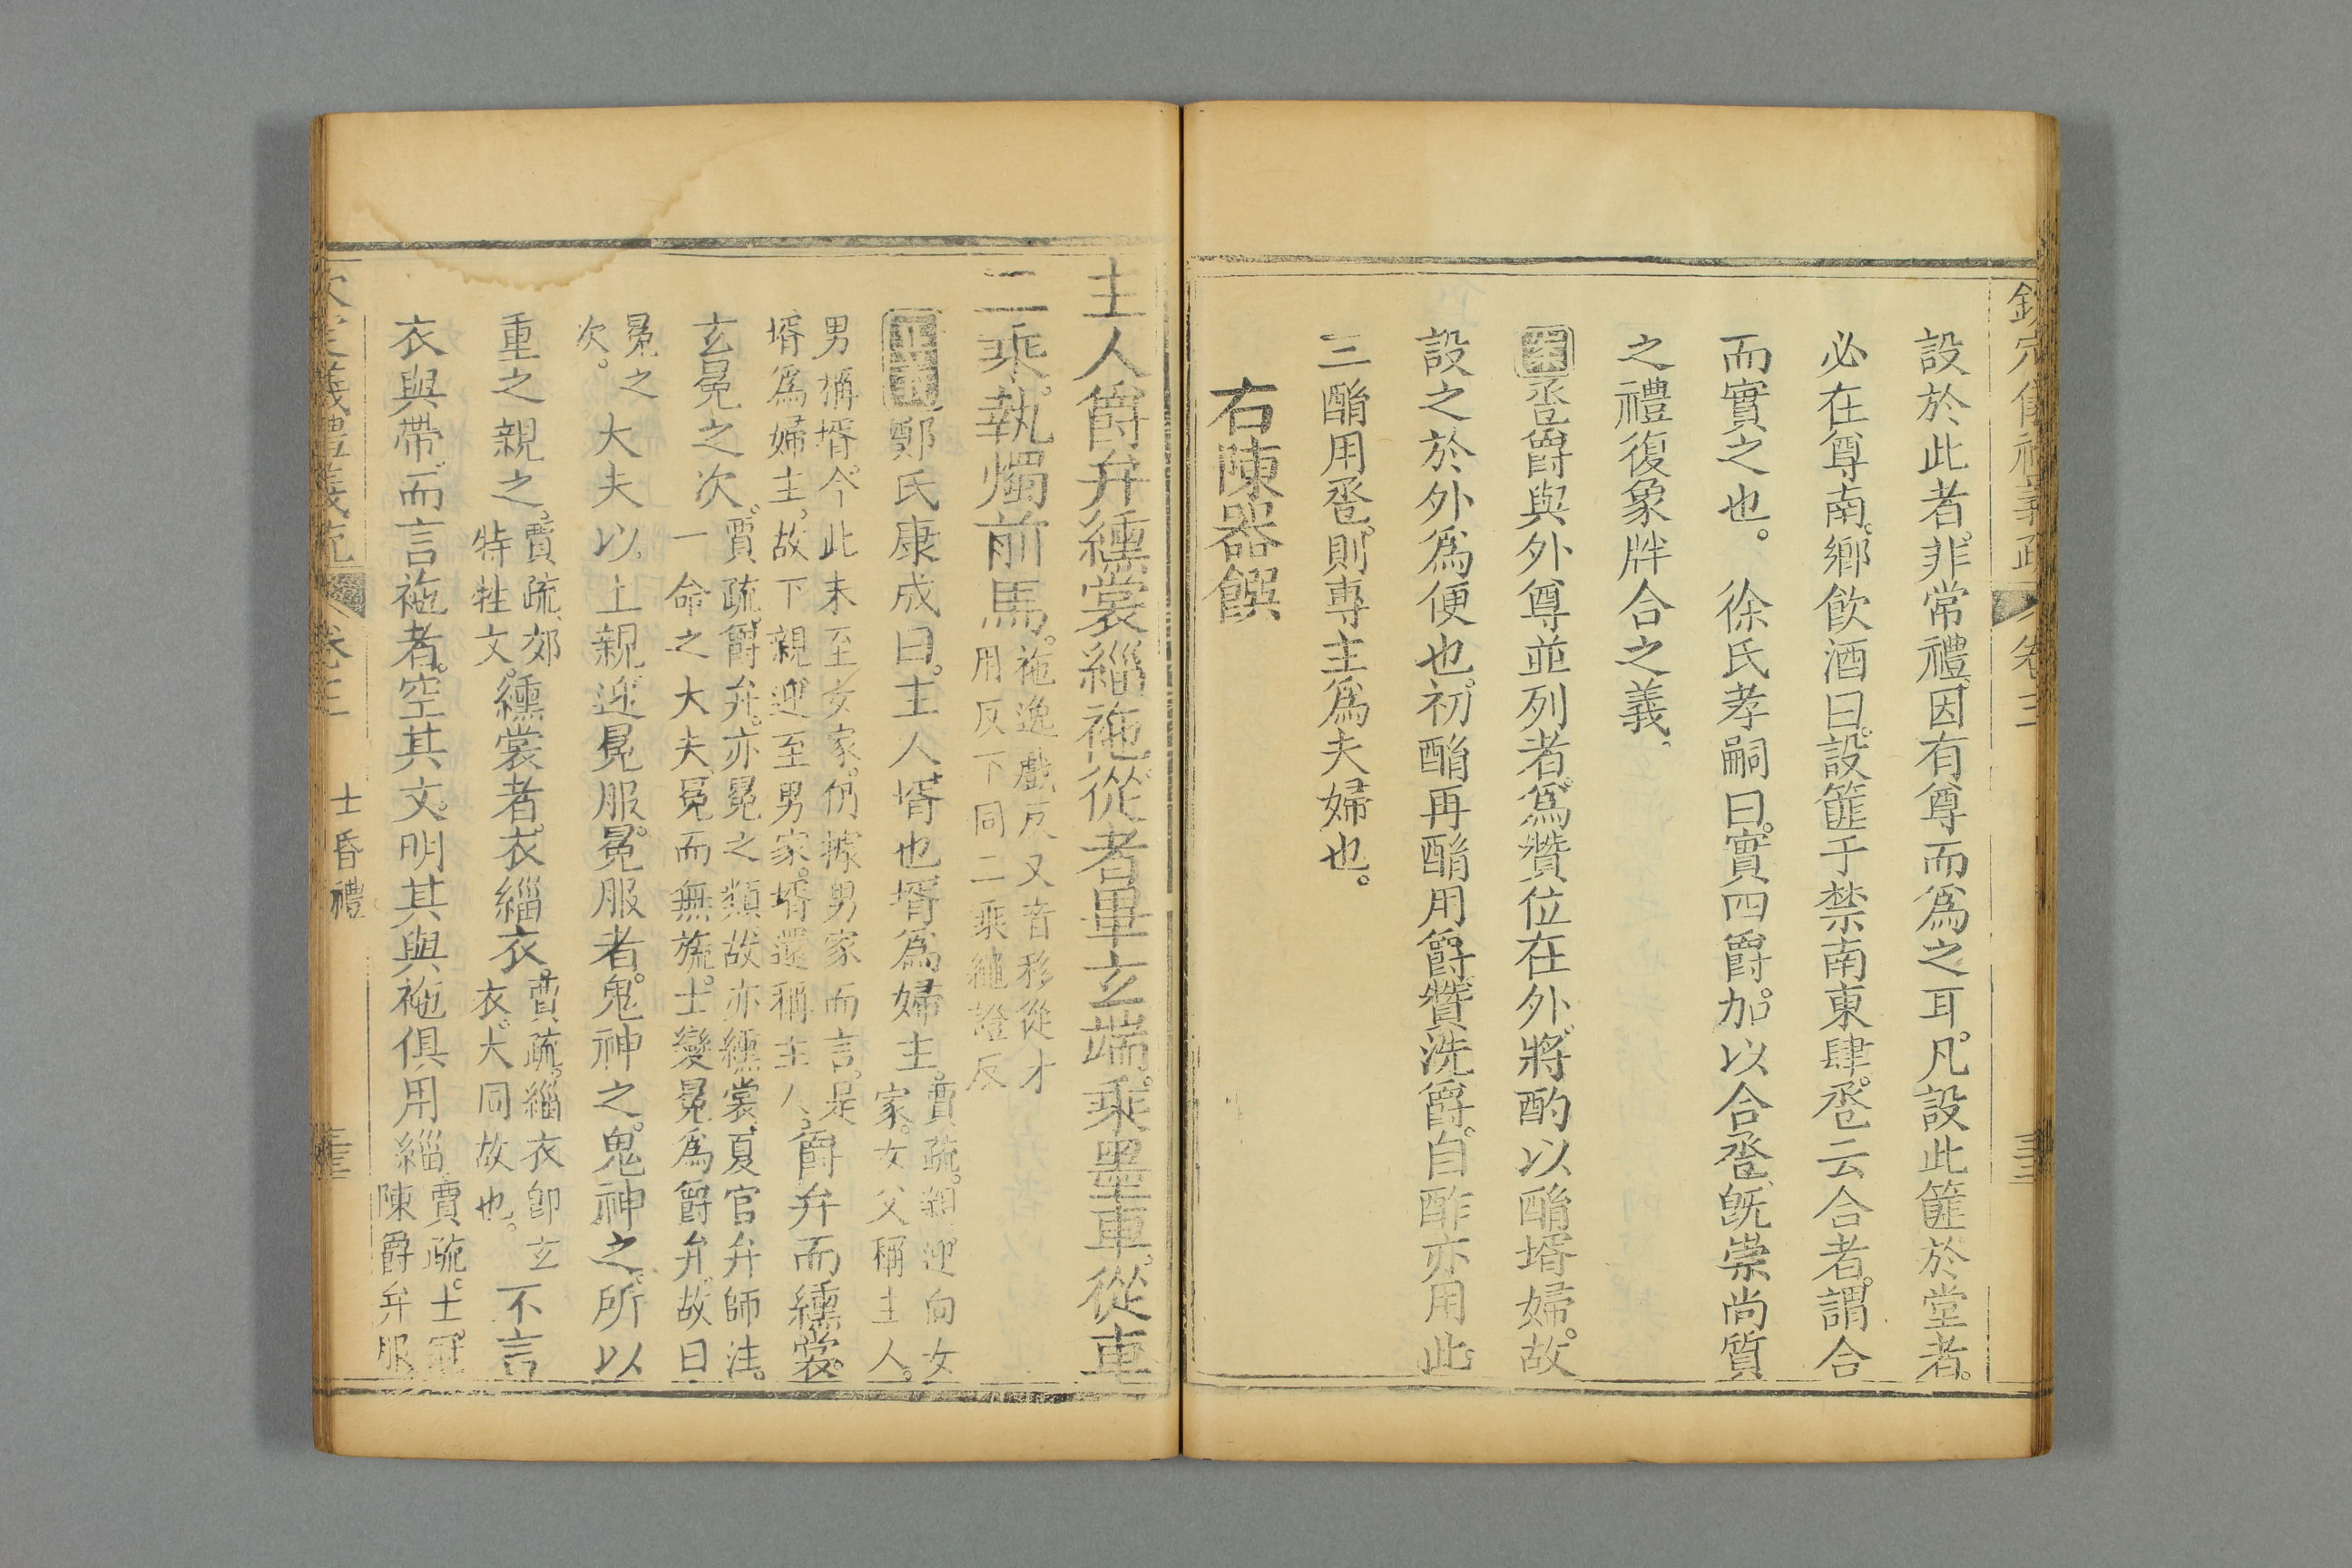 設於此者。非常禮。因有尊而爲之耳。凡設此篚於堂者。
必在尊南。鄉飲酒曰。設篚于禁南東肆。卺云合者。謂合
而實之也。　徐氏孝嗣曰。實四爵。加。以合卺。旣崇尚質
之禮。復象牉合之義。
案卺爵與外尊並列者。爲贊位在外。將酌以酳壻婦。故
設之於外爲便也。初酳再酳用爵。贊洗爵。自酢亦用此。
三酳用卺。則專主爲夫婦也。
右陳器饌
主人爵弁纁裳緇袘。從者畢玄端。乘墨車。從車
二乘。執燭前馬。袘逸戲反又音移從才
用反下同二乘繩證反
正義鄭氏康成曰。主人壻也。壻爲婦主。賈疏。親迎向女
家。女父稱主人。
男稱壻。今此未至女家。仍據男家而言。是
壻爲婦主。故下親迎至男家。壻還稱主人。爵弁而纁裳。
玄冕之次。賈疏。爵弁。亦冕之類。故亦纁裳。夏官弁師注。
一命之大夫。冕而無旒。士變冕爲爵弁。故曰
冕之
次。大夫以上親迎冕服。冕服者。鬼神之。鬼神之。所以
重之親之。賈疏。郊
特牲文。纁裳者。衣緇衣。賈疏。緇衣卽玄
衣。大同故也。不言
衣與帶。而言袘者。空其文。明其與袘俱用緇。賈疏。士冠
陳爵弁服
卷三　士昏禮